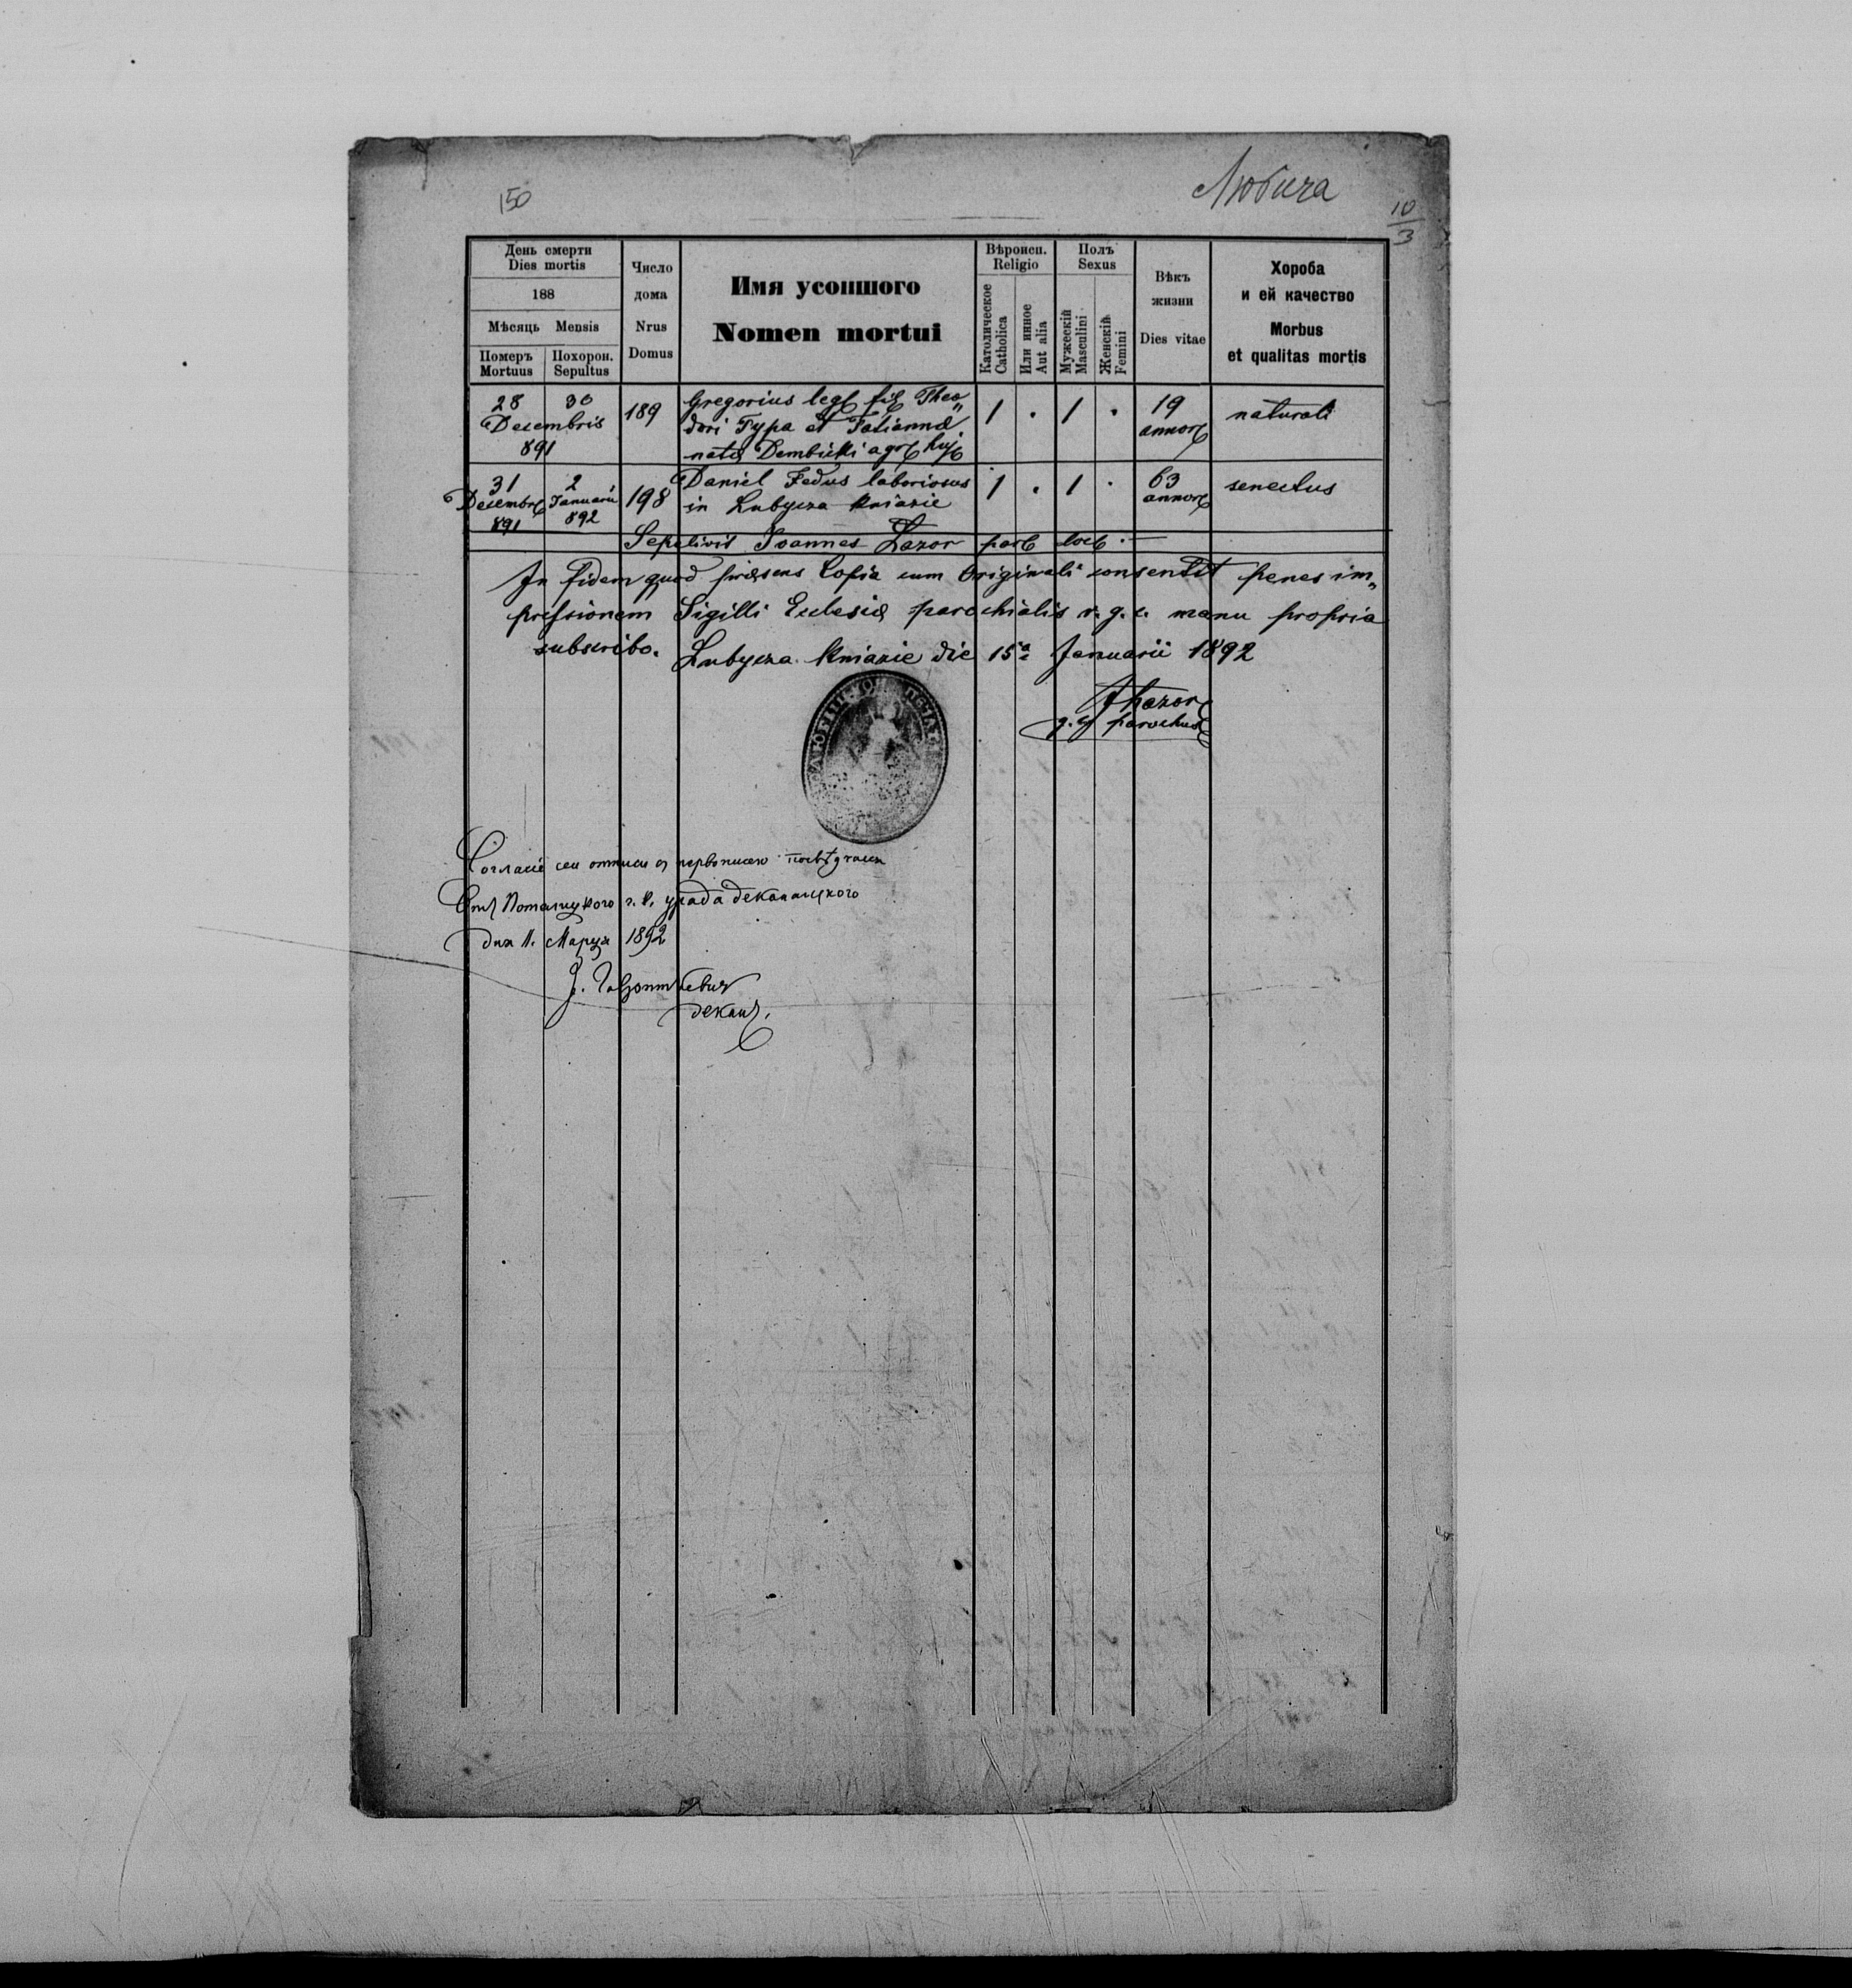 150
Любича
10
3
День смерти
Dies mortis
188
Мѣсяць Mensis
Померъ
Mortuus
Похорон.
Sepultus
Число
дома
Nrus
Domus
Имя усопшого
Nomen mortui
Вѣроисп.
Religio
Католическое
Catholica
Или инное
Aut alia
Полъ
Sexus
Мужескій
Masculini
Женскій
Femini
Вѣкъ
жизни
Dies vitae
Хороба
и ей качество
Morbus
et qualitas mortis
28 30
Decembris
891
189
Gregorius leg fil Theo„
dori Typa et Tatianna
nata Dembicki agr huj
1 . 1 .
19
annor
naturali
31
Decembr
891
2
Januarii
892
198
Daniel Fedus laboriosus
in Lubycza Kniazie
1 . 1 .
63
annor
senectus
Sepelivit Joannes Lazor par loc . —
In fidem quod præsens Copia cum Originali consentit penes im„
pressionem Sigilli Eclesiæ parochialis r. g. c. manu propria
subscribo.
Lubycza Kniazie die 15a Januarii 1892
JLazor
g. c. parochus
Согласіе сеи отписи съ первописею посвѣдчаеся
Отъ Потелицкого г. к. уряда деканацкого
дня 11. Марця 1892
деканъ,